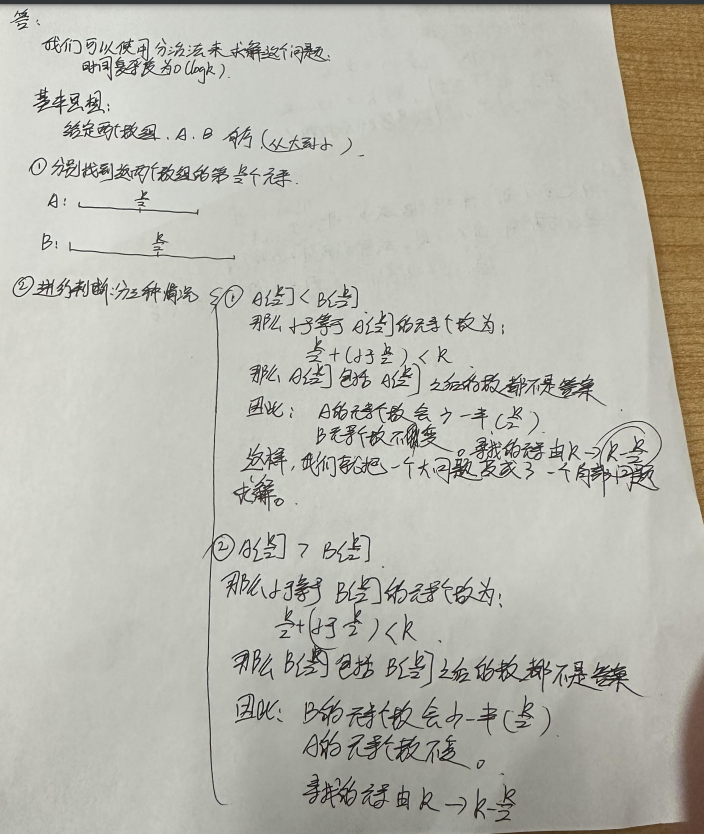 答:
我们可以使用分治法来求解这个问题.
时间复杂度为O(logk).
基本思想:
给定两个数组.A.B 有序(从大到小).
①分别找到这两个数组的第k/2个元素.
A: k/2
B: k/2
②进行判断:分三种情况
① A[k/2] < B[k/2]
那么小于等于A[k/2]的元素个数为:
k/2+(小于k/2)<k
那么A[k/2]包括A[k/2]之后的数都不是答案
因此: A的元素个数会少一半(k/2)
B元素个数不变。寻找的元素由k→k-k/2
这样,我们就把一个大问题变成了一个局部问题
求解。
② A[k/2] > B[k/2]
那么小于等于B[k/2]的元素个数为:
k/2+(小于k/2)<k
那么B[k/2]包括B[k/2]之后的数都不是答案
因此: B的元素个数会少一半(k/2)
A的元素个数不变。
寻找的元素由k→k-k/2